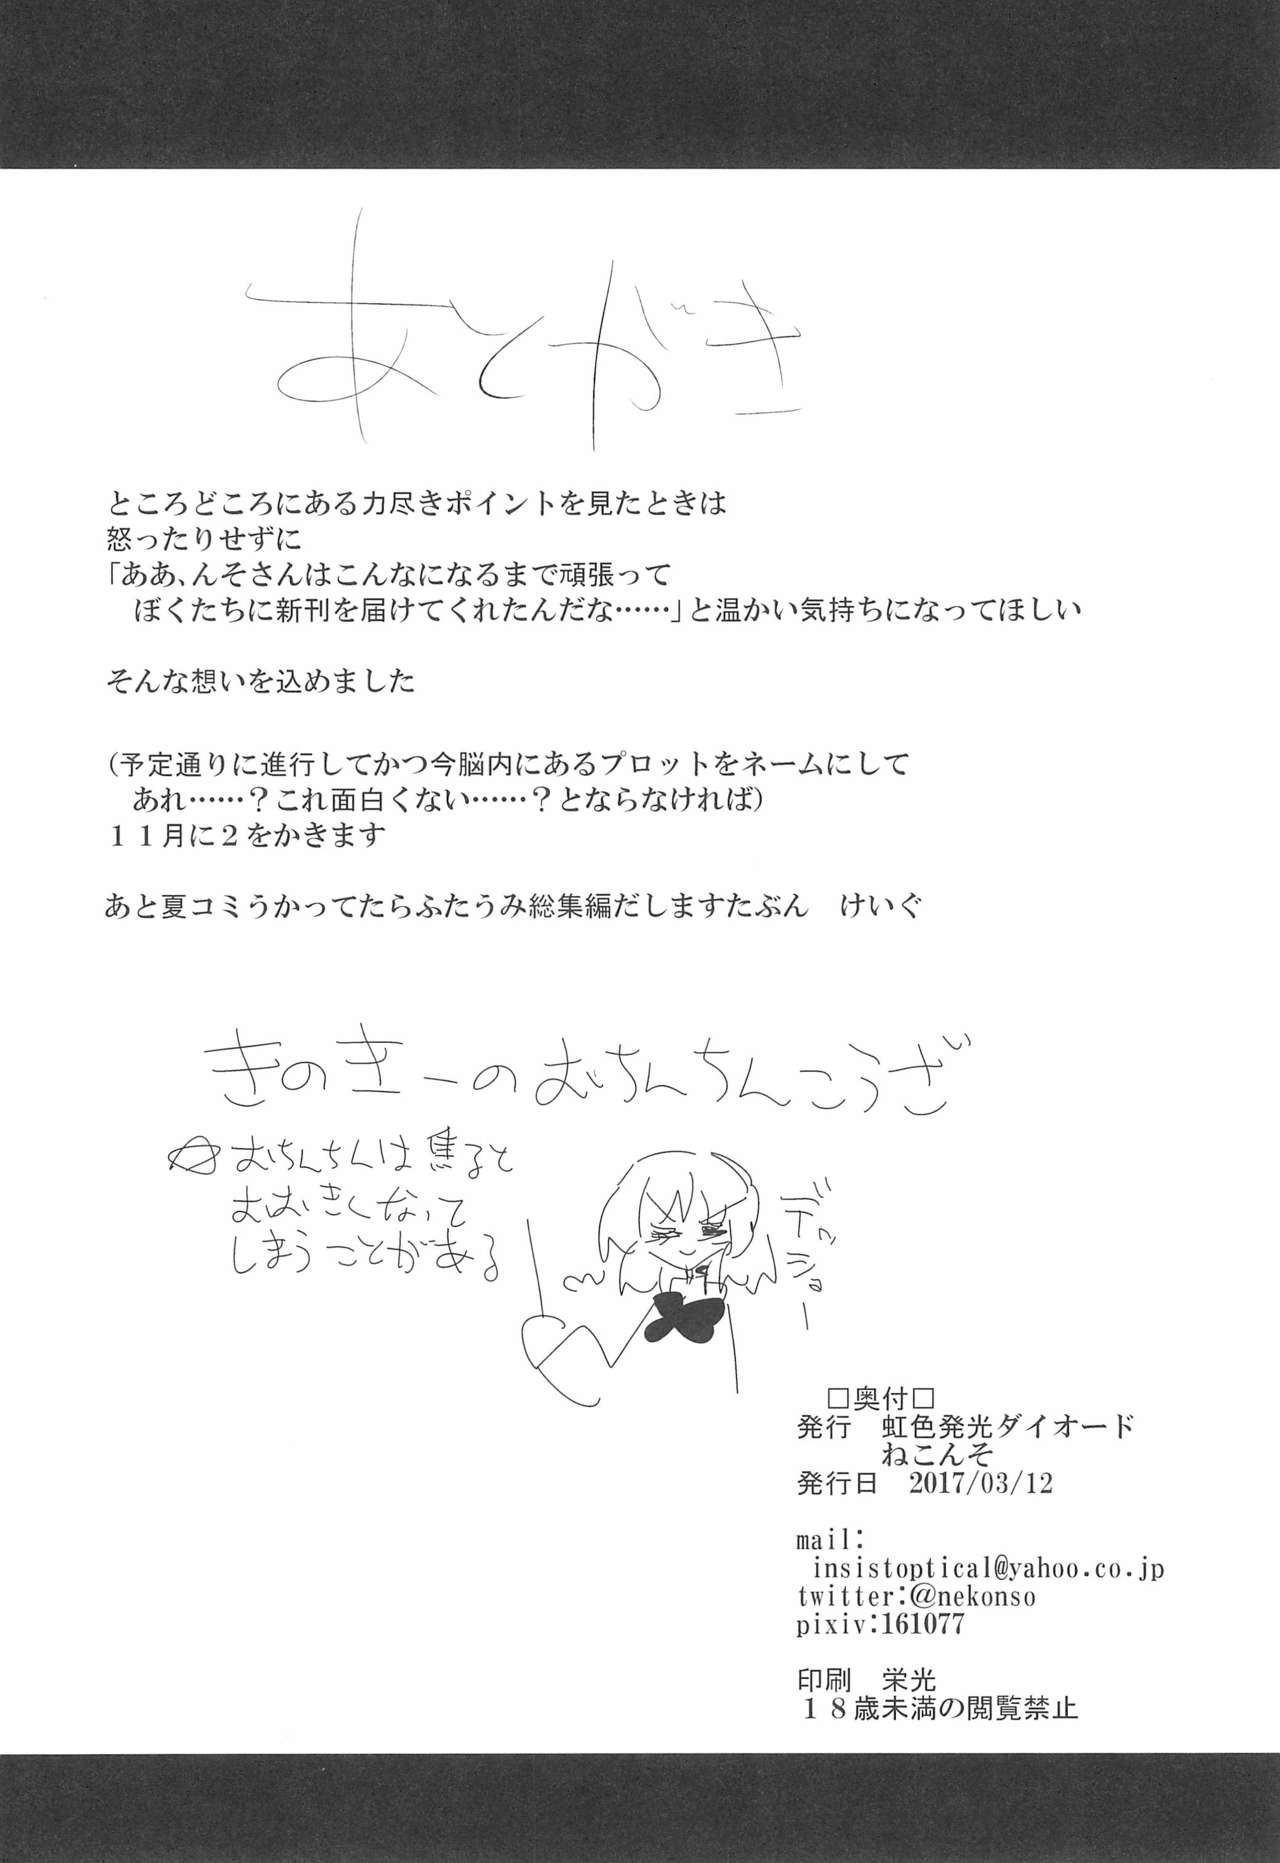 あとがき
ところどころにある力尽きポイントを見たときは
怒ったりせずに
「ああ、んそさんはこんなになるまで頑張って
ぼくたちに新刊を届けてくれたんだな……」と温かい気持ちになってほしい
そんな想いを込めました
（予定通りに進行してかつ今脳内にあるプロットをネームにして
あれ……？これ面白くない……？とならなければ）
１１月に２をかきます
あと夏コミうかってたらふたうみ総集編だしますたぶん　けいぐ
きのきーのおちんちんこうざ
☆おちんちんは焦ると
おおきくなって
しまうことがある
デッショー
□奥付□
発行　虹色発光ダイオード
ねこんそ
発行日　2017/03/12
mail:
insistoptical@yahoo.co.jp
twitter:@nekonso
pixiv:161077
印刷　栄光
１８歳未満の閲覧禁止